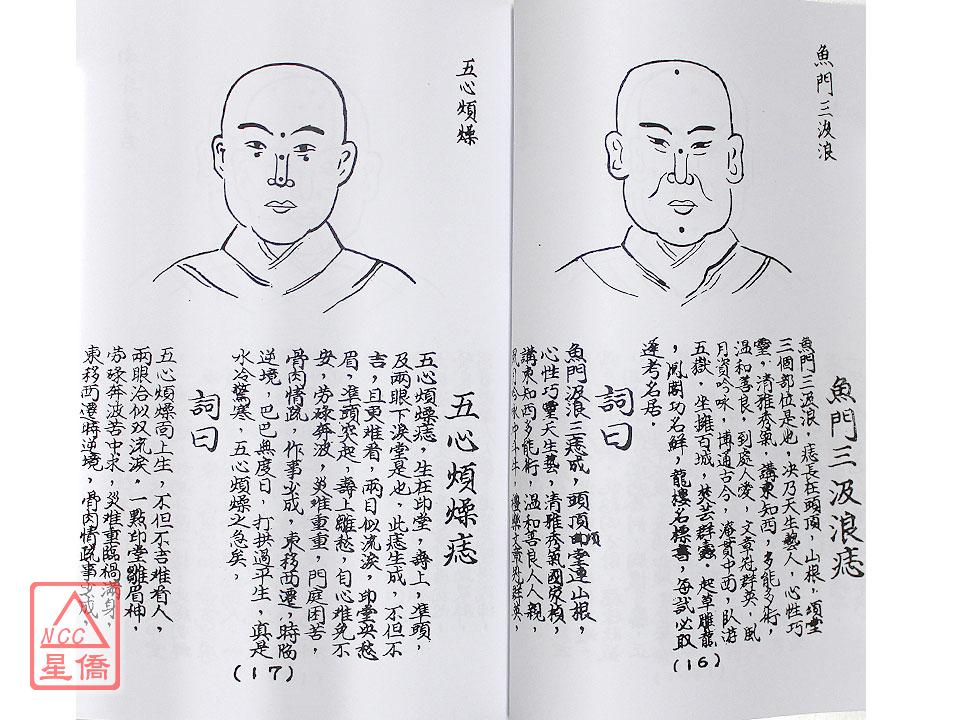 魚門三汲浪
魚門三汲浪痣
魚門三汲浪,痣長在頭頂,山根,頌堂
三個部位是也,决乃天生藝人,心性巧
靈,清雅秀氣,講東知西,多能多術,
温和善良,到處人愛,文章冠群英,風
月資吟咏,博通古今,淹貫中西,臥游
五嶽,坐擁百城,焚芸群蠹,起草雕龍
,洌闈功名鮮,龍樓名標書,每試必取
逐考名居。
(16)
詞曰
魚門汲浪三痣成,頭頂頌堂連山根,
心性巧靈天生藝,清雅秀氣國戾楨,
講東知西多能術,温和善良人人親,
五心煩燥
五心煩燥痣
五心煩燥痣,生在印堂,壽上,準頭,
及兩眼下淚堂是也,此痣生成,不但不
吉,且更难看,兩目似流淚,印堂央愁
眉,準頭突起,壽上雖愁,自心难免不
安,劳碌奔波,災难重重,門庭困苦,
骨肉情疏,作事少成,東移西遷,時臨
逆境,巴巴無度日,打拱過平生,真是
水冷驚寒,五心煩燥之急矣,
(17)
詞曰
五心煩燥面上生,不但不吉难看人,
兩眼洽似双流淚,一點印堂雛眉神,
劳碌奔波苦中求,災难重臨禍滿身,
東移西遷時逆境,骨肉情疏事少成,
NCC
星僑